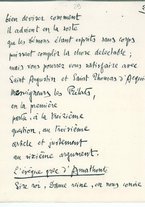 bien deviser comment
il advient en la sorte
que les démons étant esprits sans corps
puissent remplir la chose délectable;
mais vous pouvez vous satisfaire avec
Saint Augustin et Saint Thomas d'Aquin
Messeigneurs les Prélats,
en la première
partie, à la treizième
question, au troisième
article et justement
au sixième argument.
L'évêque grec d'Amathonte
Sire roi, Dame reine, on nous convie